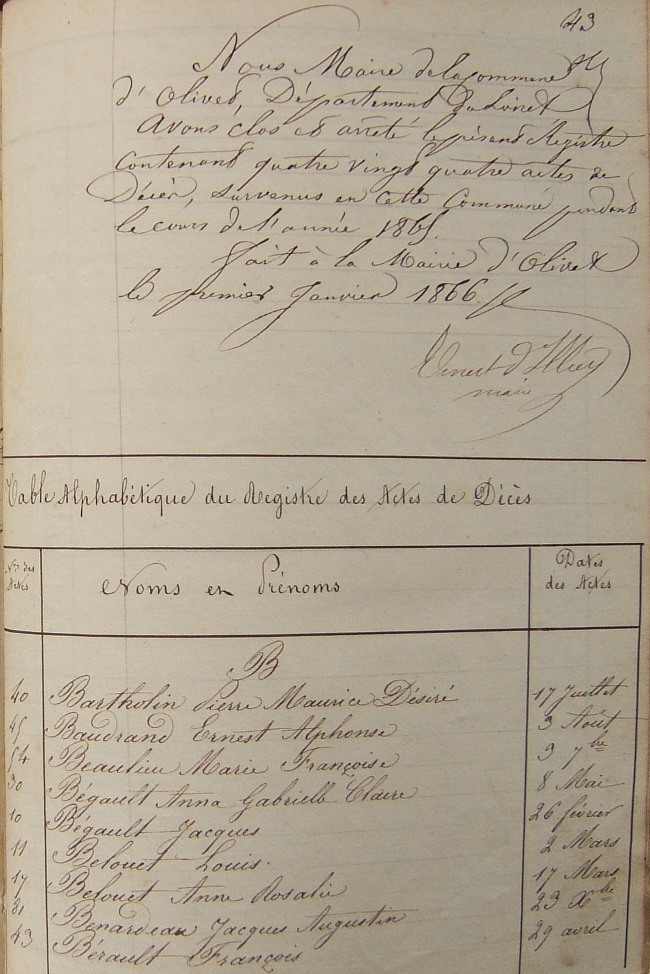 43
Nous Maire de la commune
d'Olivet, Département du Loiret
Avons clos et arrêté le présent Registre
contenant quatre vingt quatre actes de
Décès, survenus en cette Commune pendant
le cours de l'année 1865.
fait à la Mairie d'Olivet
le premier Janvier 1866
maire
Table Alphabétique du Registre des Actes de Décès
Nos des Actes
Noms et Prénoms
Dates des Actes
B
40 Bartholin Pierre Maurice Désiré 17 Juillet
45 Baudrand Ernest Alphonse 3 Août
54 Beaulieu Marie Françoise 3 7bre
30 Bégault Anna Gabrielle Claire 8 Mai
10 Bégault Jacques 26 février
11 Belouet Louis. 2 Mars
17 Belouet Anne Rosalie 17 Mars
81 Benardeau Jacques Augustin 23 Xbre
43 Bérault François 29 avril